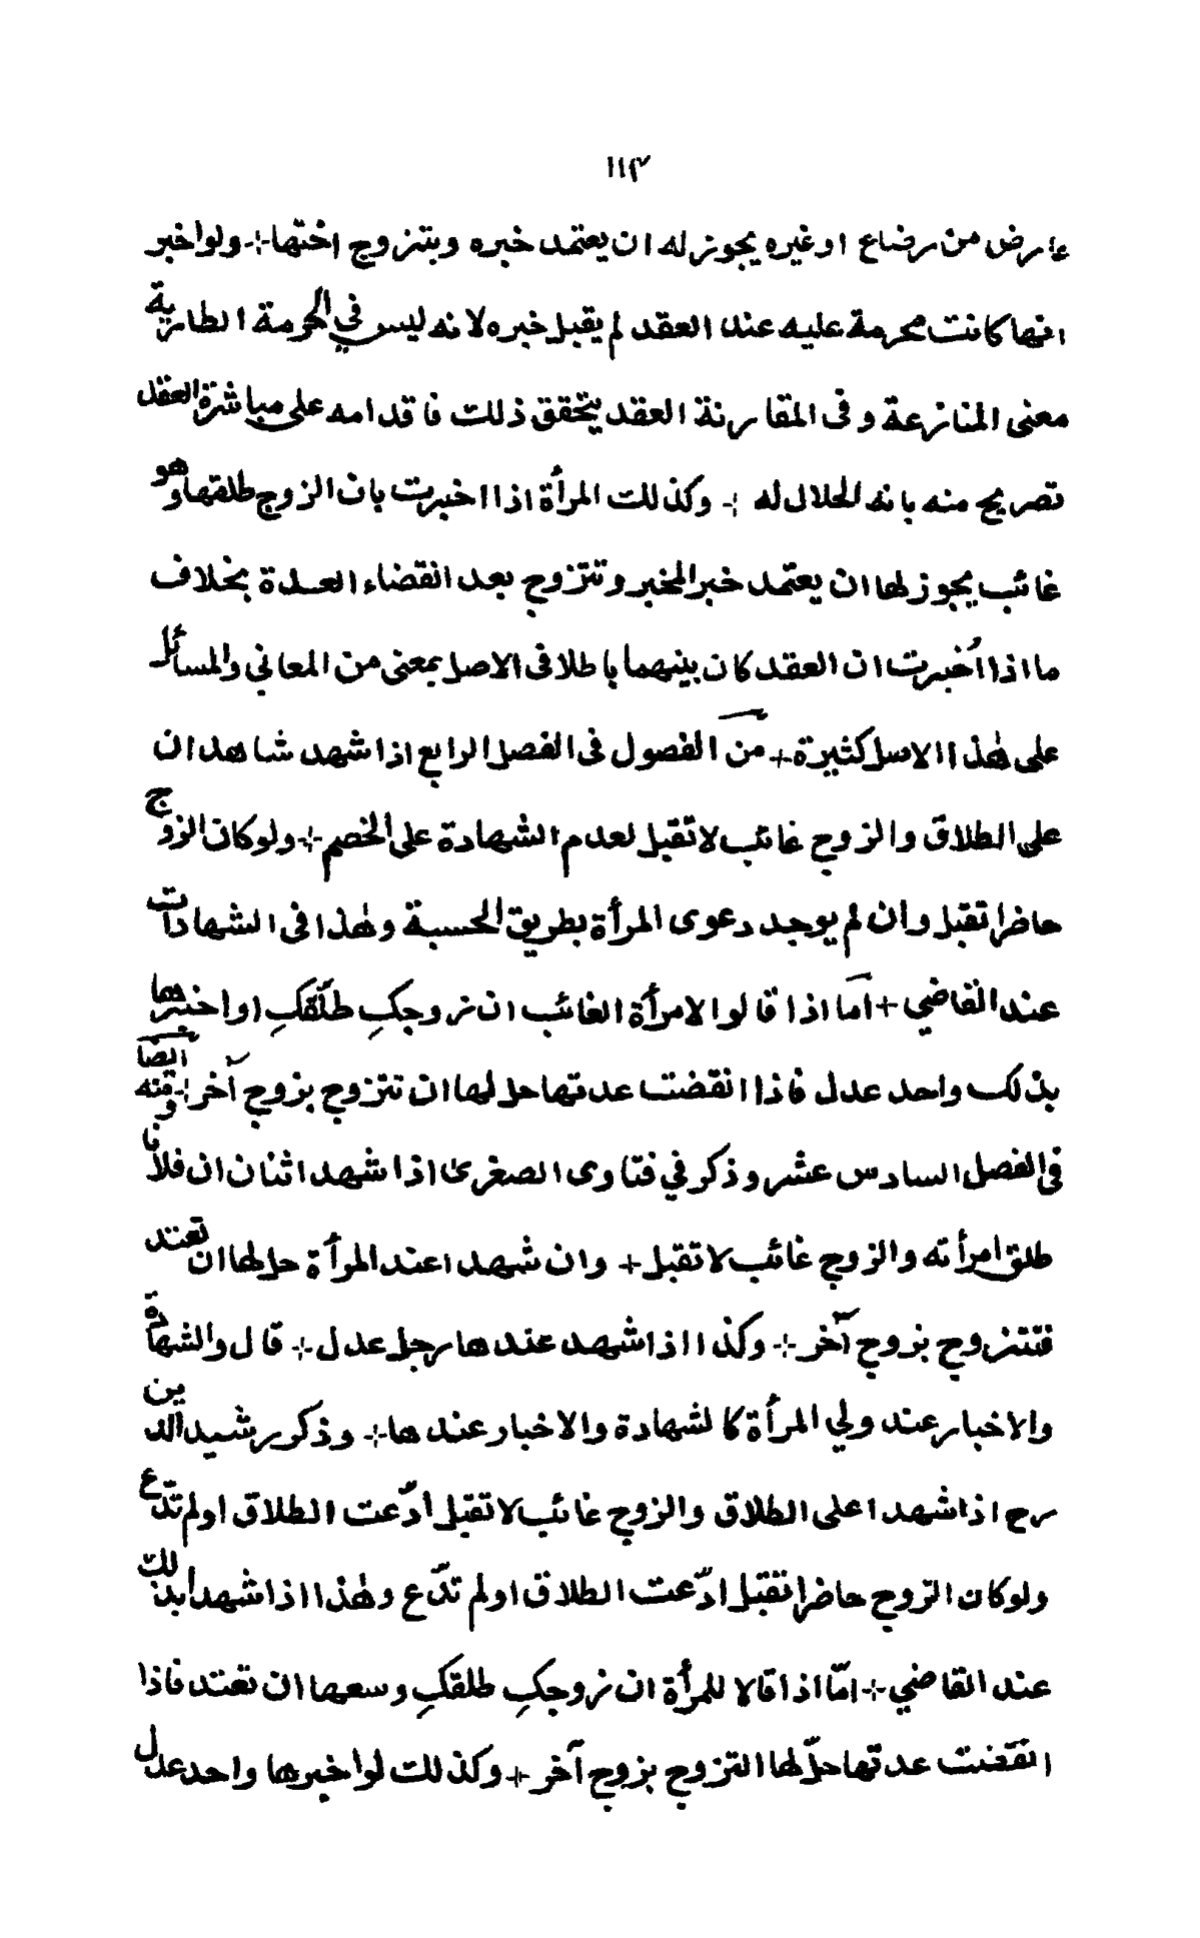 ١١٣
عارض من رضاع او غيره يجوز له ان يعتمد خبره ويتزوج اختها + ولو اخبر
انها كانت محرمة عليه عند العقد لم يقبل خبره لانه ليس في الحرمة الطارية
معنى المنازعة وفى المقارنة العقد يتحقق ذلك فاقدامه على مباشرة العقد
تصريح منه بانه الحلال له + وكذلك المرأة اذا اخبرت بان الزوج طلقها وهو
غائب يجوز لها ان يعتمد خبر المخبر وتتزوج بعد انقضاء العدة بخلاف
ما اذا أخبرت ان العقد كان بينهما باطلا فى الاصل بمعنى من المعاني والمسائل
على هٰذا الاصل كثيرة + من الفصول فى الفصل الرابع اذا شهد شاهدان
على الطلاق والزوج غائب لا تقبل لعدم الشهادة على الخصم + ولو كان الزوج
حاضرا تقبل وان لم يوجد دعوى المرأة بطريق الحسبة وهٰذا فى الشهادات
عند القاضي + اما اذا قالوا لامرأة الغائب ان زوجكِ طلّقكِ او اخبرها
بذلك واحد عدل فاذا انقضت عدتها حل لها ان تتزوج بزوج آخر + وفيه ايضا
فى الفصل السادس عشر وذكر في فتاوى الصغرىٰ اذا شهد اثنان ان فلانا
طلق امرأته والزوج غائب لا تقبل + وان شهدا عند المرأة حل لها ان تعتد
فتتزوج بزوج آخر + وكذا اذا شهد عندها رجل عدل + قال والشهادة
والاخبار عند ولي المرأة كالشهادة والاخبار عندها + وذكر رشيد الدين
رح اذا شهدا على الطلاق والزوج غائب لا تقبل ادّعت الطلاق او لم تدّع
ولو كان الزوج حاضرا تقبل ادّعت الطلاق او لم تدّع وهٰذا اذا شهدا بذلك
عند القاضي + امّا اذا قالا للمرأة ان زوجكِ طلقكِ وسعها ان تعتد فاذا
انقضت عدتها حلّ لها التزوج بزوج آخر + وكذلك لو اخبرها واحد عدل